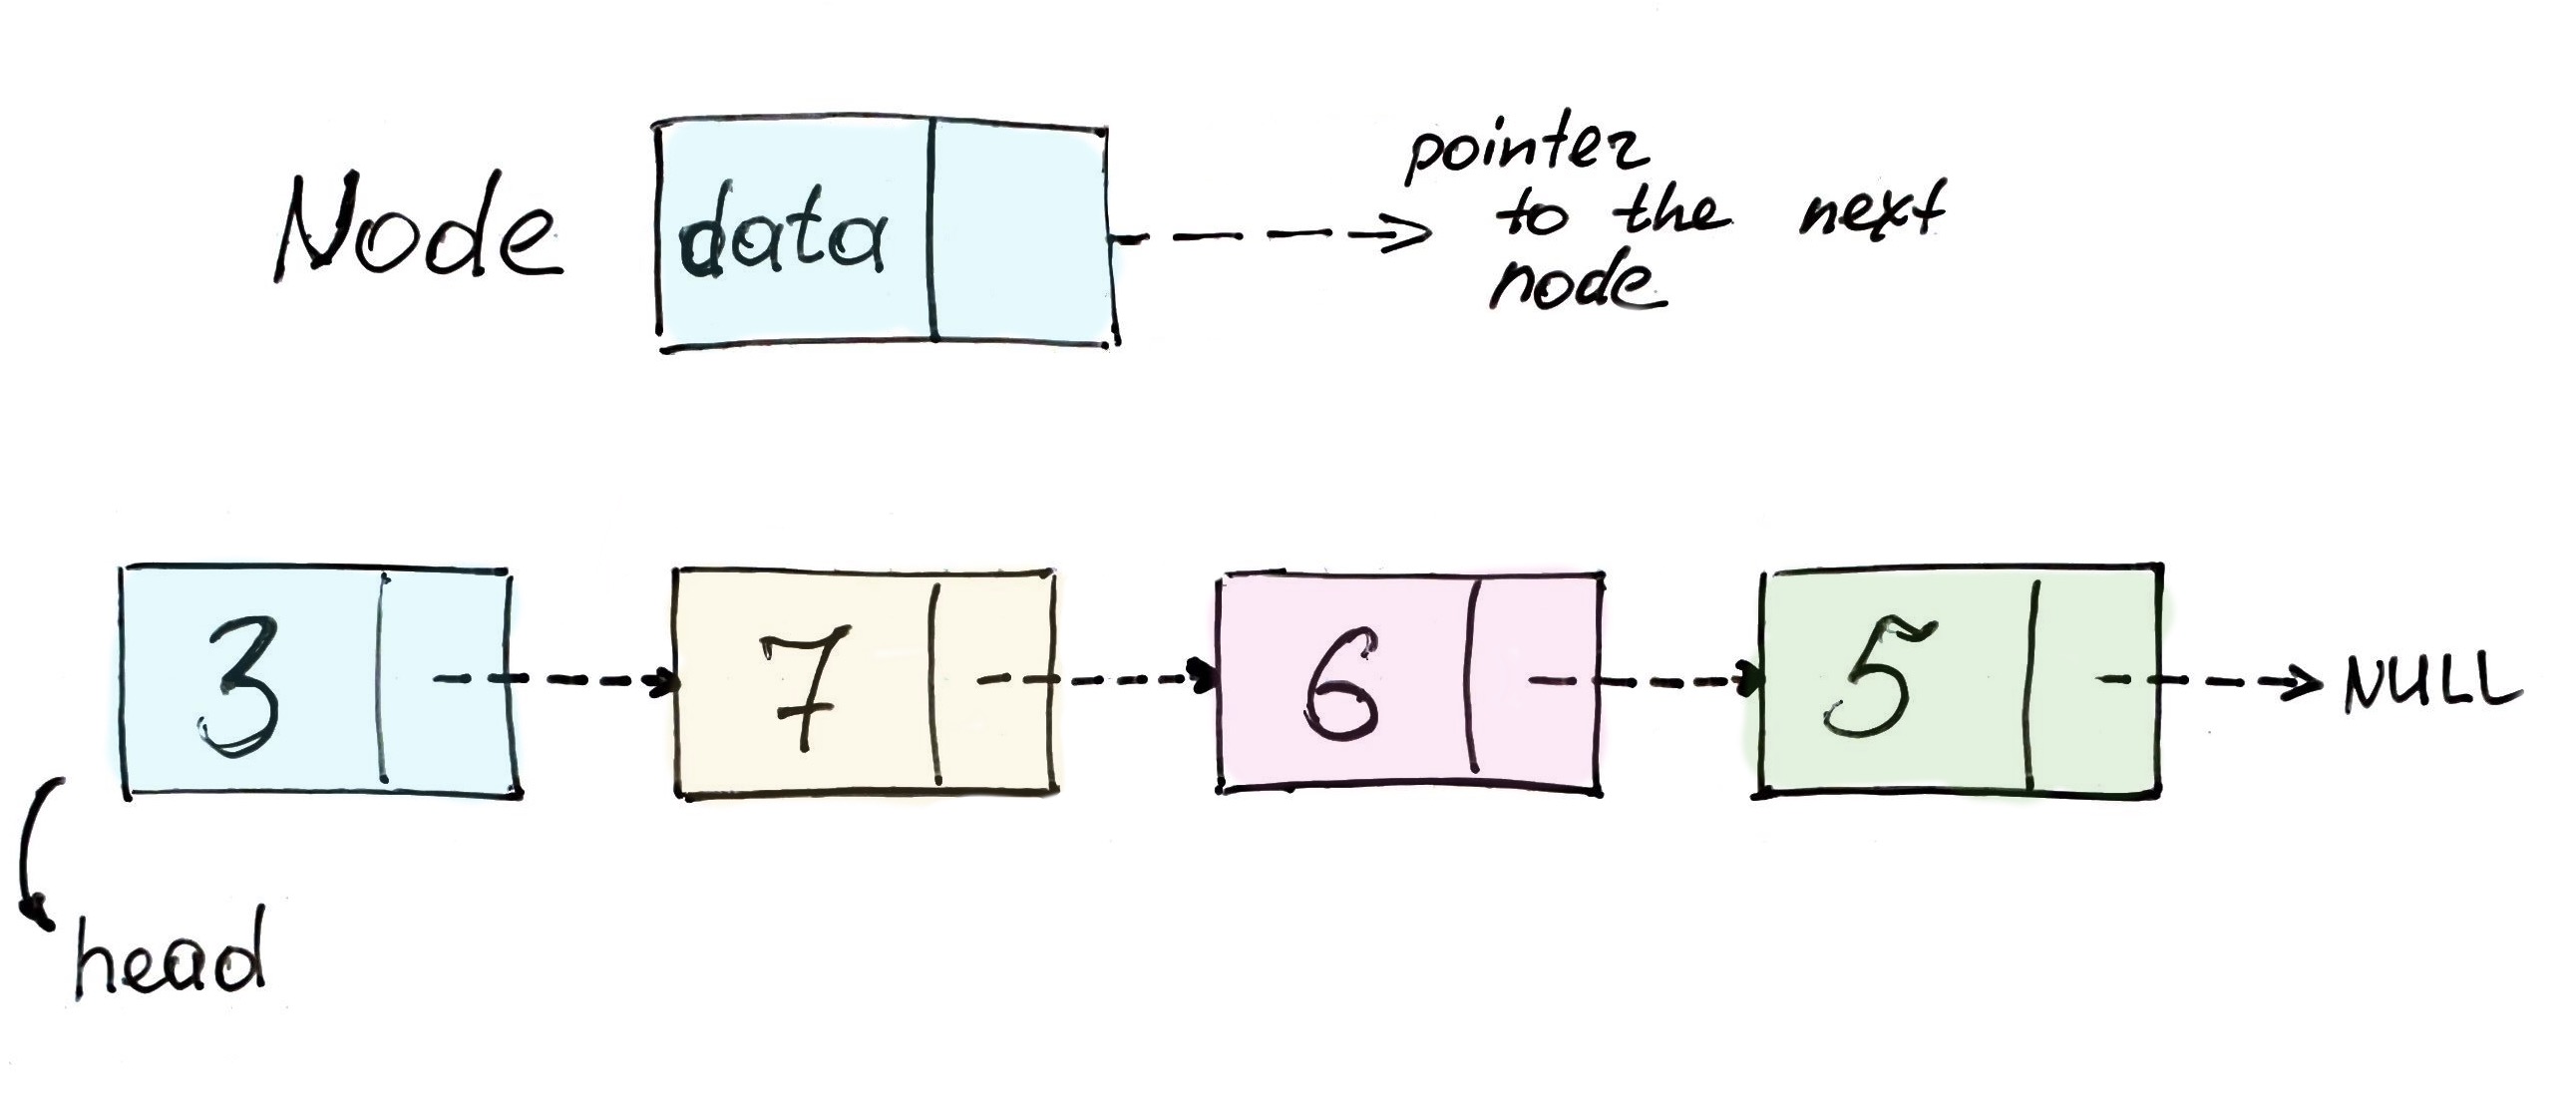 Node
data
pointer
to the next
node
3
7
6
5
NULL
head